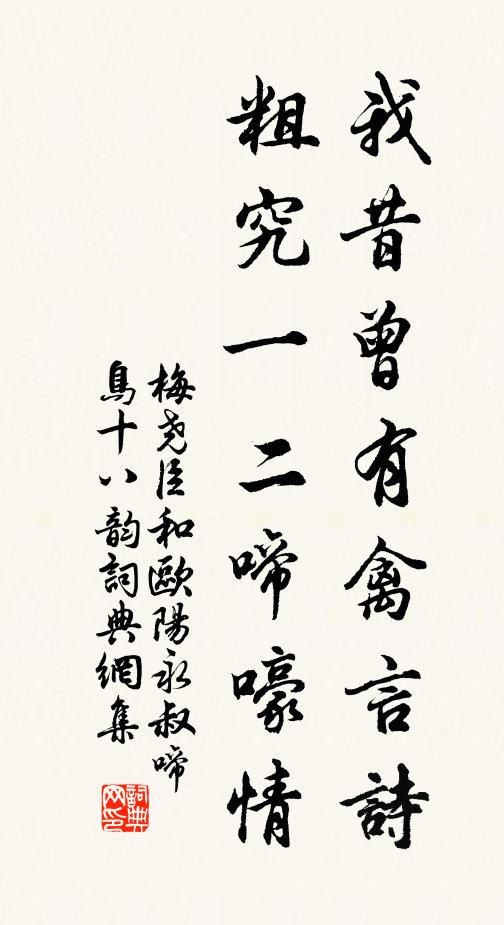 我昔曾有禽言詩
粗究一二啼嚎情
梅堯臣和歐陽永叔啼
鳥十八韵詞典網集
詞典网印